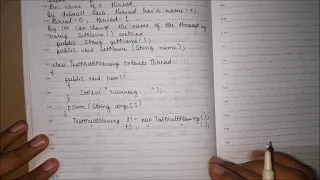 the name of a thread.
by default each thread has a name i.e.
thread-0, thread-1
By we can change the name of the thread by
using setName() method
public String getName();
public void setName (String name);
class TestMultiNaming extends Thread
{
public void run()
{
SOPln(" running
}
psvm (String args[])
TestMultiNaming t1 = new TestMultiNaming();
t2 = ();